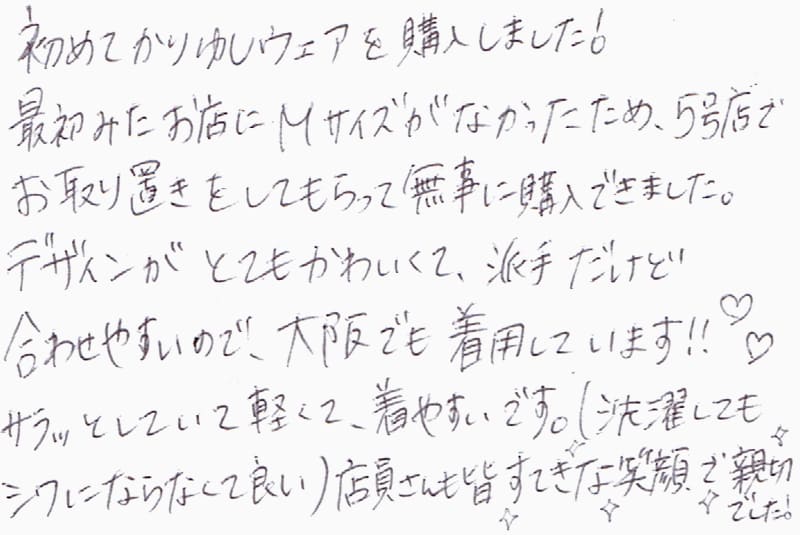 初めてかりゆしウェアを購入しました!
最初みたお店にMサイズがなかったため、5号店で
お取り置きをしてもらって無事に購入できました。
デザインがとてもかわいくて、派手だけど
合わせやすいので、大阪でも着用しています!!♡♡
サラッとしていて軽くて、着やすいです。(洗濯しても
シワにならなくて良い)店員さんも皆すてきな笑顔で親切
でした!